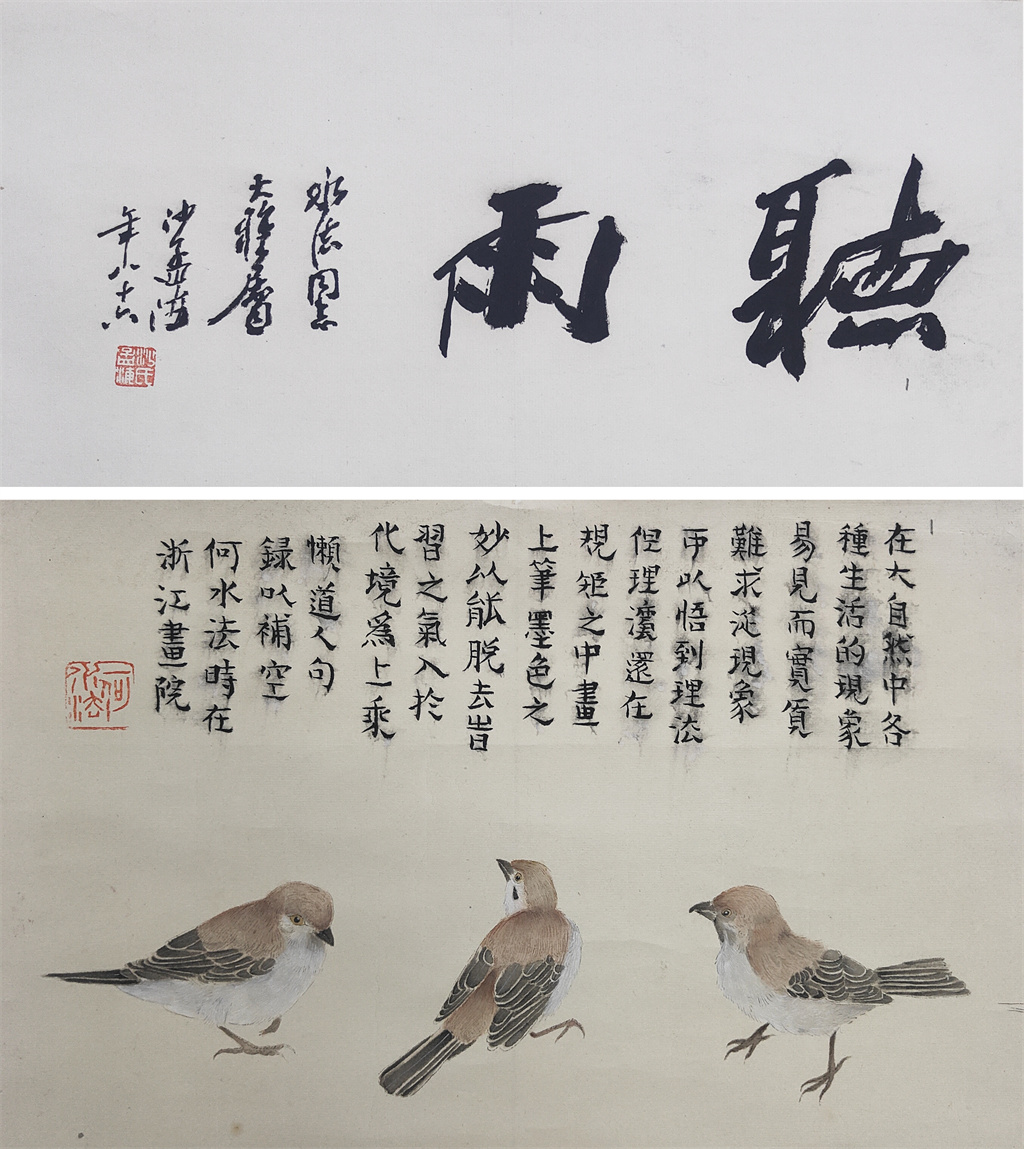 聽雨
水法同志
大雅屬
沙孟海
年八十六
沙氏
孟海
在大自然中各
種生活的現象
易見而實質
難求從現象
可以悟到理法
但理灋還在
規矩之中畫
上筆墨色之
妙以能脱去昔
習之氣入於
化境爲上乘
懶道人句
録以補空
何水法時在
浙江畫院
何水法